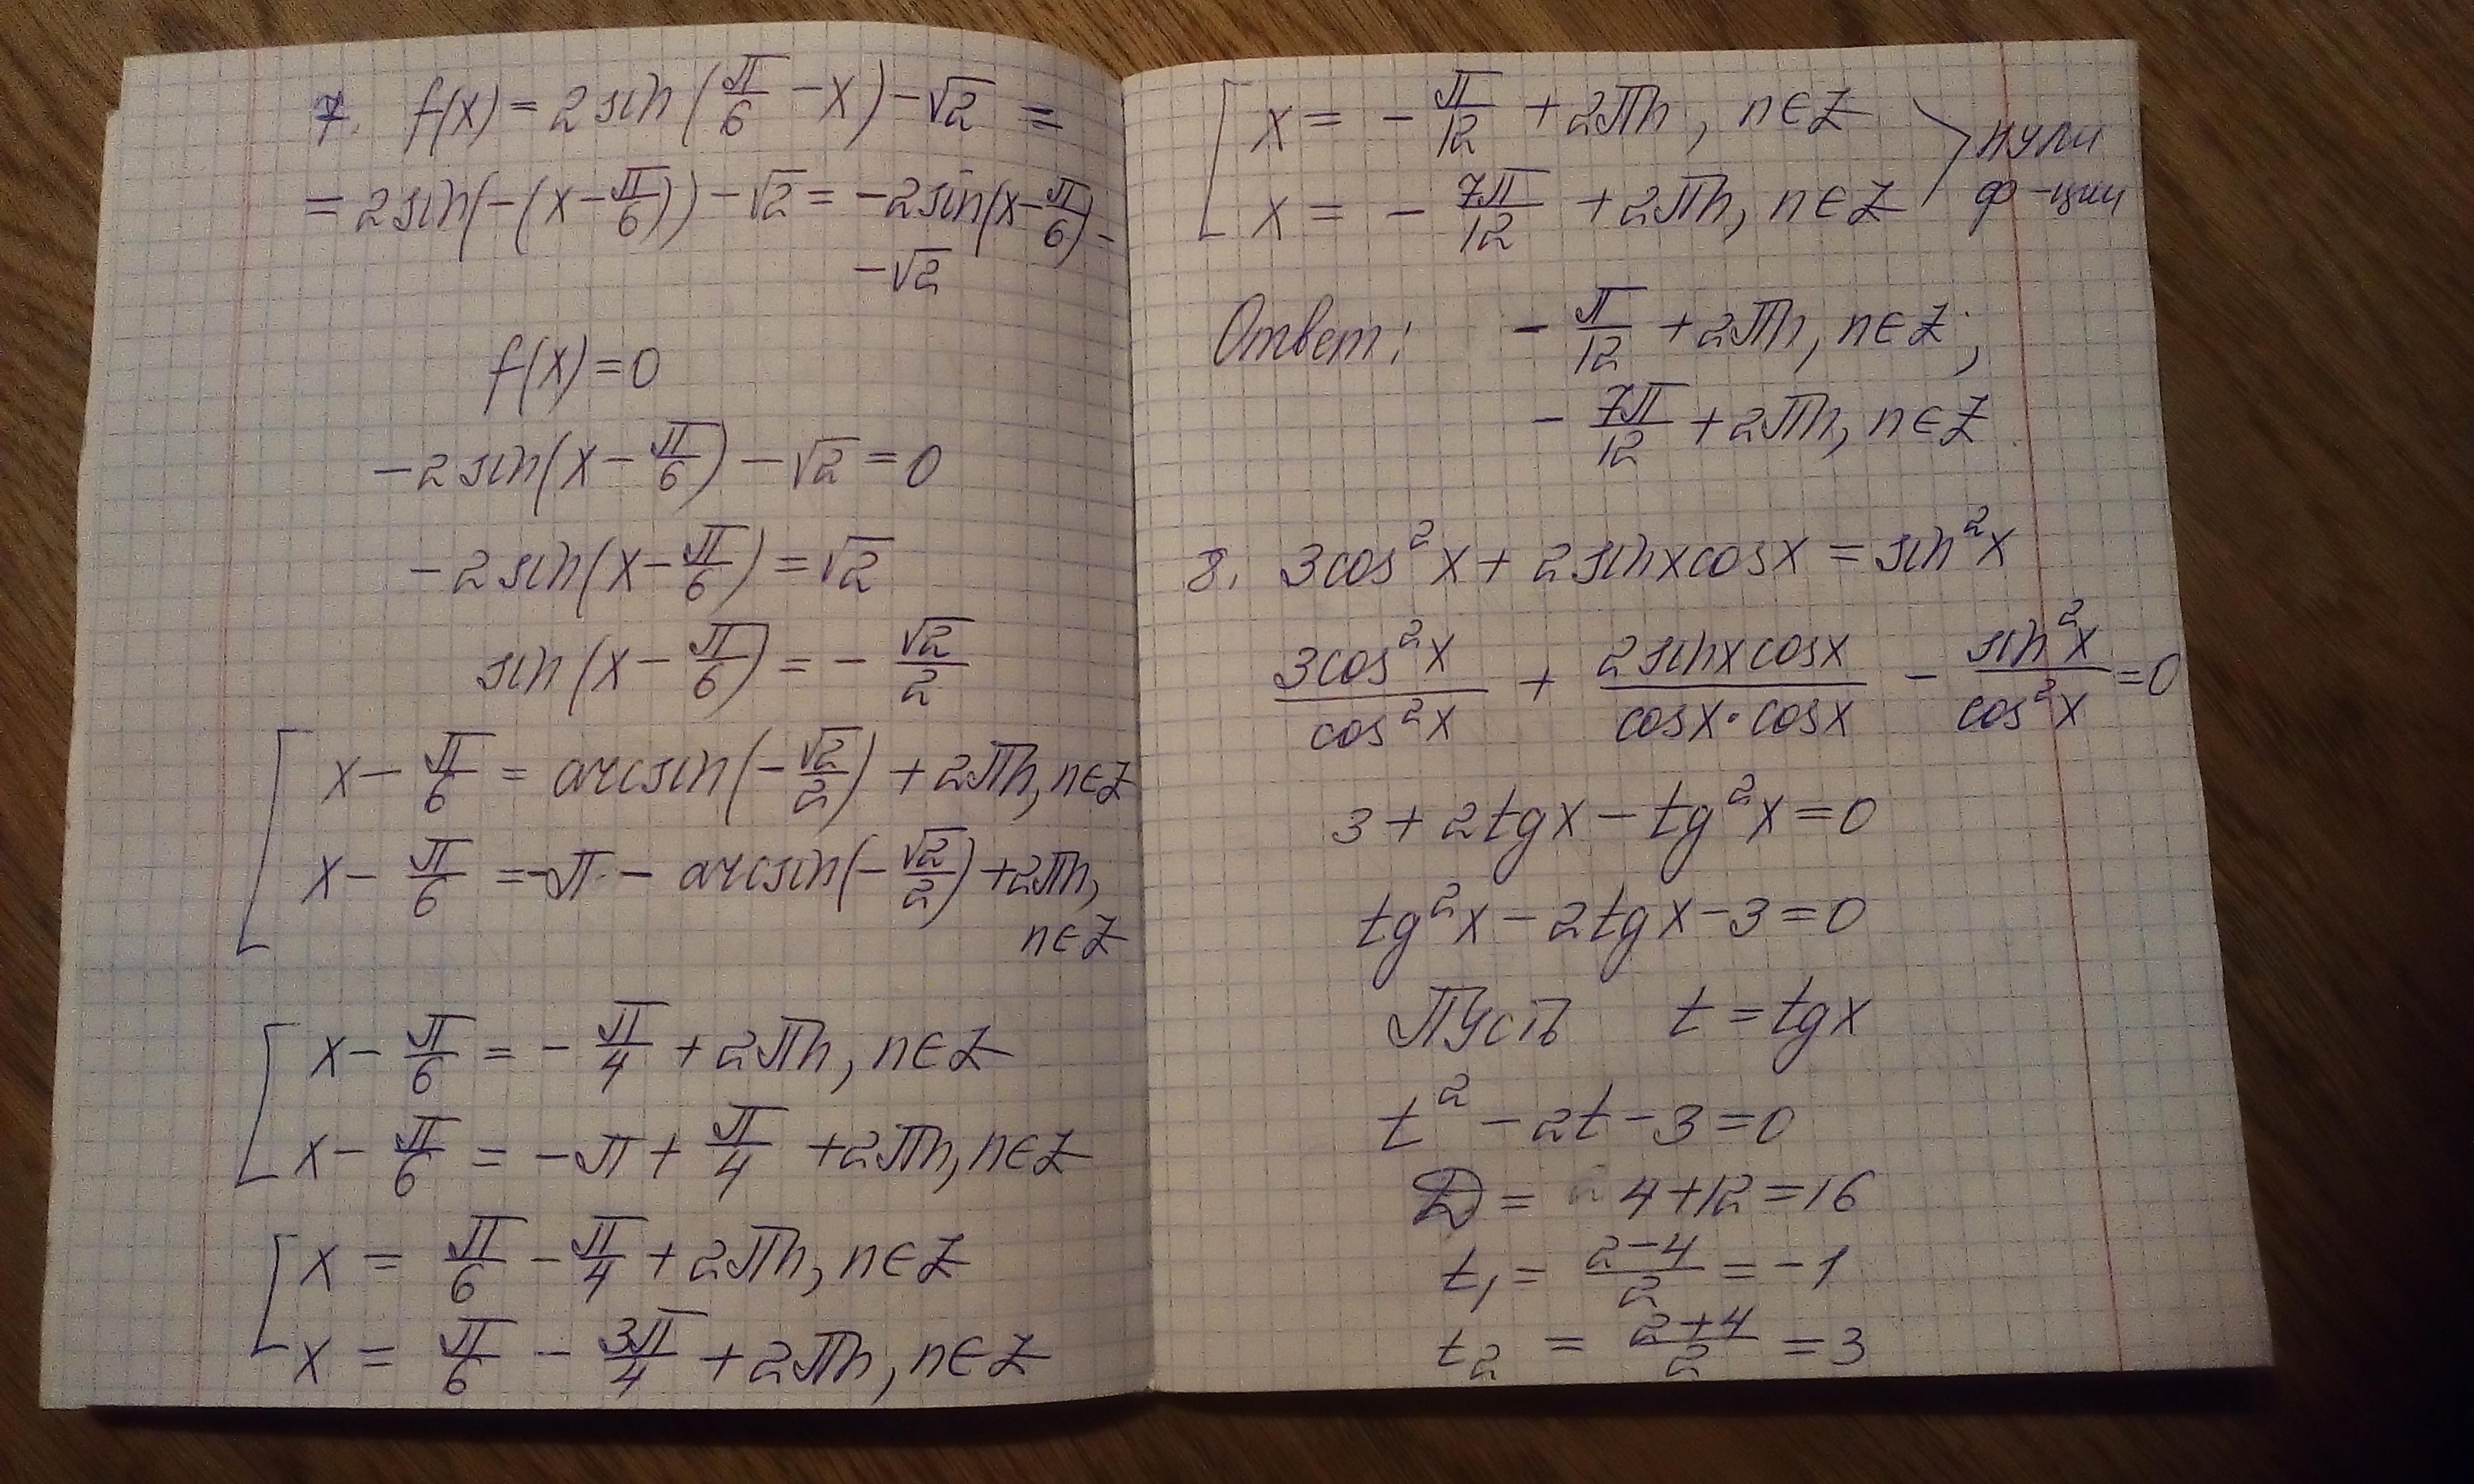 7. f(x) = 2 sin(π/6 − x) − √2 =
= 2 sin(−(x − π/6)) − √2 = −2 sin(x − π/6) −
− √2
f(x) = 0
−2 sin(x − π/6) − √2 = 0
−2 sin(x − π/6) = √2
sin(x − π/6) = − √2/2
[ x − π/6 = arcsin(− √2/2) + 2πn, n∈Z
x − π/6 = −π − arcsin(− √2/2) + 2πn,
n∈Z
[ x − π/6 = − π/4 + 2πn, n∈Z
x − π/6 = −π + π/4 + 2πn, n∈Z
[ x = π/6 − π/4 + 2πn, n∈Z
x = π/6 − 3π/4 + 2πn, n∈Z
[ x = − π/12 + 2πn, n∈Z > нули
x = − 7π/12 + 2πn, n∈Z ф-ции
Ответ: − π/12 + 2πn, n∈Z;
− 7π/12 + 2πn, n∈Z
8. 3cos²x + 2 sinx cosx = sin²x
3cos²x/cos²x + 2 sinx cosx/cosx·cosx − sin²x/cos²x = 0
3 + 2tgx − tg²x = 0
tg²x − 2tgx − 3 = 0
Пусть t = tgx
t² − 2t − 3 = 0
D = 4 + 12 = 16
t₁ = 2−4/2 = −1
t₂ = 2+4/2 = 3